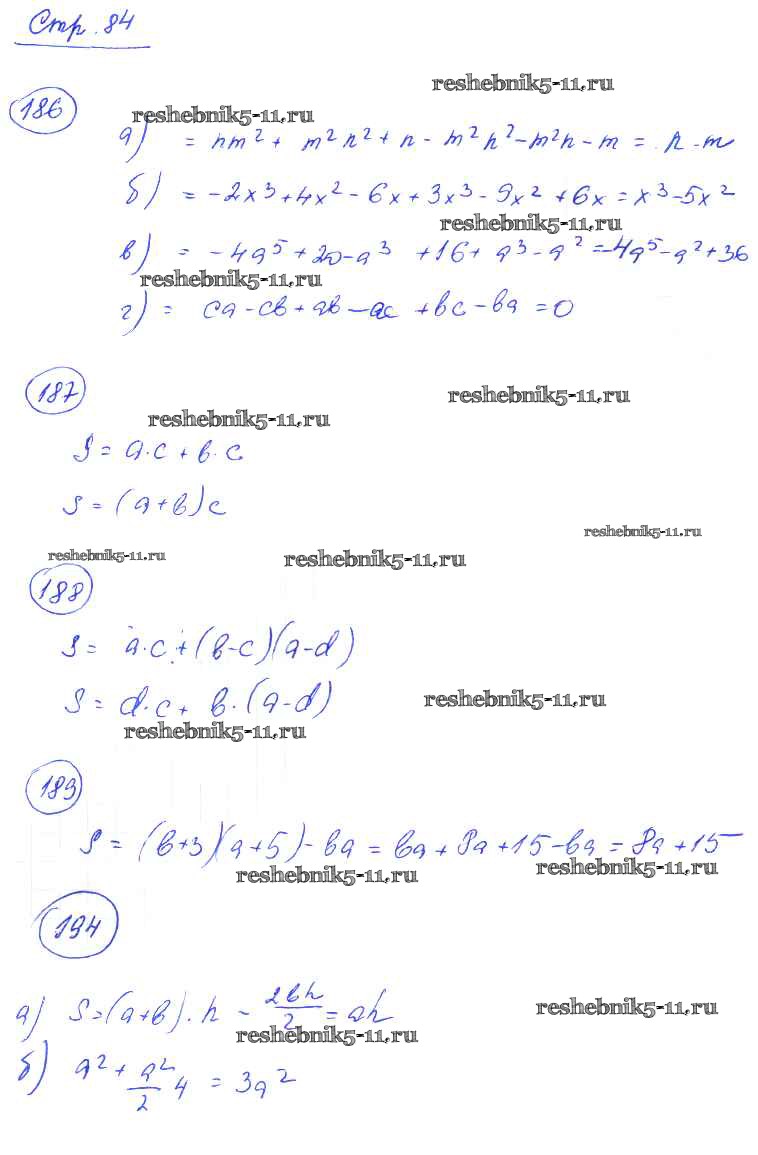 Стр. 84
reshebnik5-11.ru
186
reshebnik5-11.ru
а) = nm² + m²n² + n - m²n² - m²n - m = n - m
б) = -2x³ + 4x² - 6x + 3x³ - 9x² + 6x = x³ - 5x²
reshebnik5-11.ru
в) = -4a⁵ + 20 - a³ + 16 + a³ - a² = -4a⁵ - a² + 36
reshebnik5-11.ru
г) = ca - cb + ab - ac + bc - ba = 0
187
reshebnik5-11.ru
reshebnik5-11.ru
S = a·c + b·c
S = (a+b)c
reshebnik5-11.ru
reshebnik5-11.ru
reshebnik5-11.ru
188
S = a·c + (b-c)(a-d)
S = d·c + b·(a-d)
reshebnik5-11.ru
reshebnik5-11.ru
189
S = (b+3)(a+5) - ba = ba + 8a + 15 - ba = 8a + 15
reshebnik5-11.ru
reshebnik5-11.ru
194
а) S = (a+b)·h - 2bh/2 = ah
reshebnik5-11.ru
reshebnik5-11.ru
б) a² + a²/2 4 = 3a²